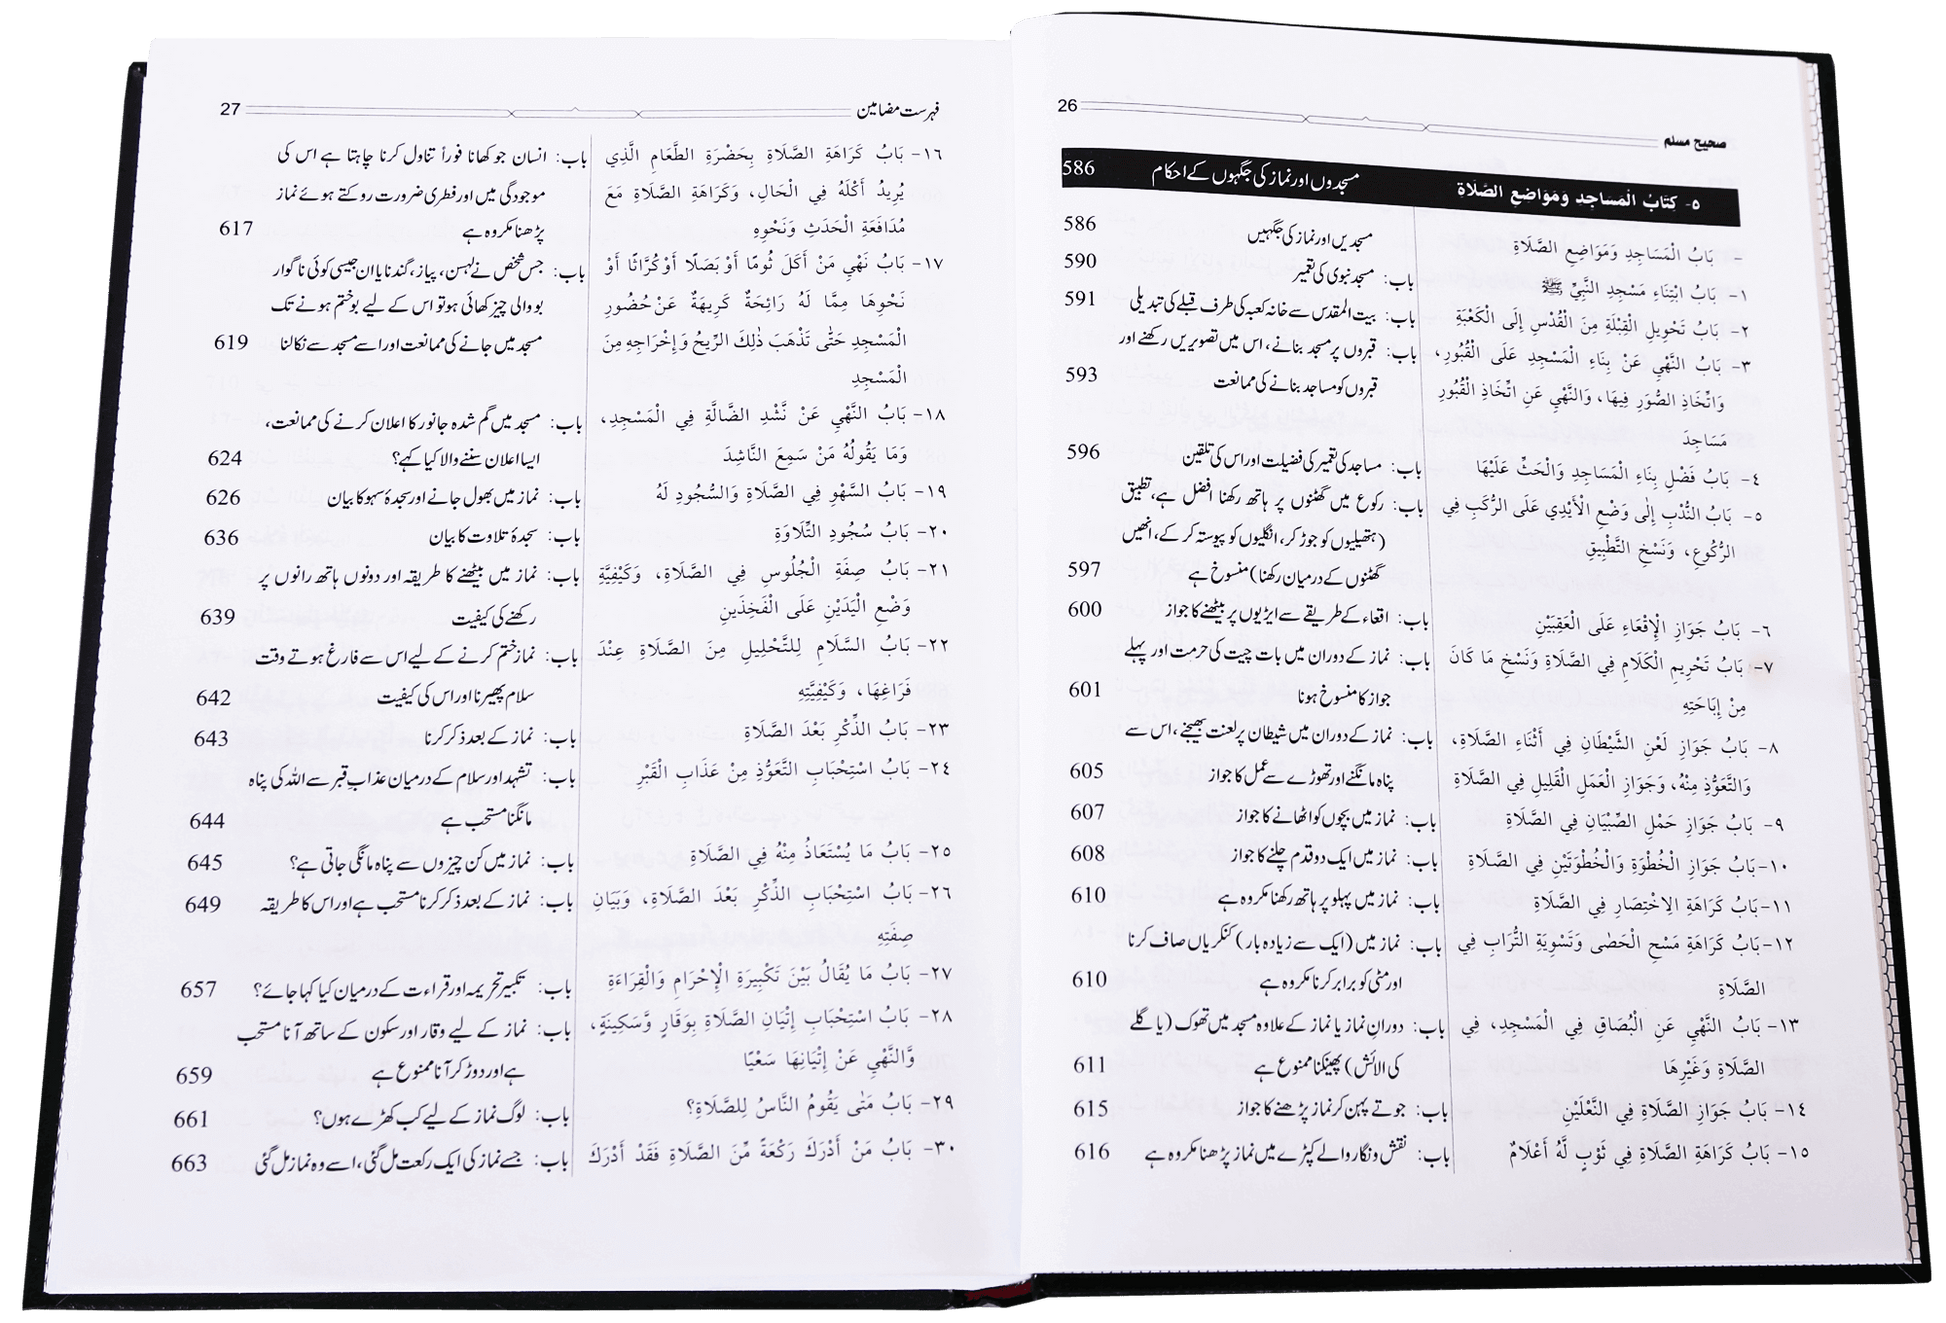 26
صحیح مسلم
٥- كِتَابُ الْمَسَاجِدِ وَمَوَاضِعِ الصَّلَاةِ مسجدوں اور نماز کی جگہوں کے احکام 586
- بَابُ الْمَسَاجِدِ وَمَوَاضِعِ الصَّلَاةِ مسجدیں اور نماز کی جگہیں 586
١- بَابُ ابْتِنَاءِ مَسْجِدِ النَّبِيِّ ﷺ باب: مسجد نبوی کی تعمیر 590
٢- بَابُ تَحْوِيلِ الْقِبْلَةِ مِنَ الْقُدْسِ إِلَى الْكَعْبَةِ باب: بیت المقدس سے خانہ کعبہ کی طرف قبلے کی تبدیلی 591
٣- بَابُ النَّهْيِ عَنْ بِنَاءِ الْمَسْجِدِ عَلَى الْقُبُورِ، باب: قبروں پر مسجد بنانے، اس میں تصویریں رکھنے اور
وَاتِّخَاذِ الصُّوَرِ فِيهَا، وَالنَّهْيِ عَنِ اتِّخَاذِ الْقُبُورِ قبروں کو مساجد بنانے کی ممانعت 593
مَسَاجِدَ
٤- بَابُ فَضْلِ بِنَاءِ الْمَسَاجِدِ وَالْحَثِّ عَلَيْهَا باب: مساجد کی تعمیر کی فضیلت اور اس کی تلقین 596
٥- بَابُ النُّدْبِ إِلَى وَضْعِ الْأَيْدِي عَلَى الرُّكَبِ فِي باب: رکوع میں گھٹنوں پر ہاتھ رکھنا افضل ہے، تطبیق
الرُّكُوعِ، وَنَسْخِ التَّطْبِيقِ (ہتھیلیوں کو جوڑ کر، انگلیوں کو پیوستہ کر کے، انھیں
گھٹنوں کے درمیان رکھنا) منسوخ ہے 597
٦- بَابُ جَوَازِ الْإِقْعَاءِ عَلَى الْعَقِبَيْنِ باب: اقعاء کے طریقے سے ایڑیوں پر بیٹھنے کا جواز 600
٧- بَابُ تَحْرِيمِ الْكَلَامِ فِي الصَّلَاةِ وَنَسْخِ مَا كَانَ باب: نماز کے دوران میں بات چیت کی حرمت اور پہلے
مِنْ إِبَاحَتِهِ جواز کا منسوخ ہونا 601
٨- بَابُ جَوَازِ لَعْنِ الشَّيْطَانِ فِي أَثْنَاءِ الصَّلَاةِ، باب: نماز کے دوران میں شیطان پر لعنت بھیجنے، اس سے
وَالتَّعَوُّذِ مِنْهُ، وَجَوَازِ الْعَمَلِ الْقَلِيلِ فِي الصَّلَاةِ پناہ مانگنے اور تھوڑے سے عمل کا جواز 605
٩- بَابُ جَوَازِ حَمْلِ الصِّبْيَانِ فِي الصَّلَاةِ باب: نماز میں بچوں کو اٹھانے کا جواز 607
١٠- بَابُ جَوَازِ الْخُطْوَةِ وَالْخُطْوَتَيْنِ فِي الصَّلَاةِ باب: نماز میں ایک دو قدم چلنے کا جواز 608
١١- بَابُ كَرَاهَةِ الِاخْتِصَارِ فِي الصَّلَاةِ باب: نماز میں پہلو پر ہاتھ رکھنا مکروہ ہے 610
١٢- بَابُ كَرَاهَةِ مَسْحِ الْحَصٰى وَتَسْوِيَةِ التُّرَابِ فِي باب: نماز میں (ایک سے زیادہ بار) کنکریاں صاف کرنا
الصَّلَاةِ اور مٹی کو برابر کرنا مکروہ ہے 610
١٣- بَابُ النَّهْيِ عَنِ الْبُصَاقِ فِي الْمَسْجِدِ، فِي باب: دورانِ نماز یا نماز کے علاوہ مسجد میں تھوک (یا گلے
الصَّلَاةِ وَغَيْرِهَا کی الائش) پھینکنا ممنوع ہے 611
١٤- بَابُ جَوَازِ الصَّلَاةِ فِي النَّعْلَيْنِ باب: جوتے پہن کر نماز پڑھنے کا جواز 615
١٥- بَابُ كَرَاهَةِ الصَّلَاةِ فِي ثَوْبٍ لَّهُ أَعْلَامٌ باب: نقش و نگار والے کپڑے میں نماز پڑھنا مکروہ ہے 616
فہرست مضامین 27
١٦- بَابُ كَرَاهَةِ الصَّلَاةِ بِحَضْرَةِ الطَّعَامِ الَّذِي باب: انسان جو کھانا فوراً تناول کرنا چاہتا ہے اس کی
يُرِيدُ أَكْلَهُ فِي الْحَالِ، وَكَرَاهَةِ الصَّلَاةِ مَعَ موجودگی میں اور فطری ضرورت روکتے ہوئے نماز
مُدَافَعَةِ الْحَدَثِ وَنَحْوِهِ پڑھنا مکروہ ہے 617
١٧- بَابُ نَهْيِ مَنْ أَكَلَ ثُومًا أَوْ بَصَلًا أَوْ كُرَّاثًا أَوْ باب: جس شخص نے لہسن، پیاز، گندنا یا ان جیسی کوئی ناگوار
نَحْوِهَا مِمَّا لَهُ رَائِحَةٌ كَرِيهَةٌ عَنْ حُضُورِ بو والی چیز کھائی ہو تو اس کے لیے بو ختم ہونے تک
الْمَسْجِدِ حَتّٰى تَذْهَبَ ذٰلِكَ الرِّيحُ وَإِخْرَاجِهِ مِنَ مسجد میں جانے کی ممانعت اور اسے مسجد سے نکالنا 619
الْمَسْجِدِ
١٨- بَابُ النَّهْيِ عَنْ نَّشْدِ الضَّالَّةِ فِي الْمَسْجِدِ، باب: مسجد میں گم شدہ جانور کا اعلان کرنے کی ممانعت،
وَمَا يَقُولُهُ مَنْ سَمِعَ النَّاشِدَ ایسا اعلان سننے والا کیا کہے؟ 624
١٩- بَابُ السَّهْوِ فِي الصَّلَاةِ وَالسُّجُودِ لَهُ باب: نماز میں بھول جانے اور سجدۂ سہو کا بیان 626
٢٠- بَابُ سُجُودِ التِّلَاوَةِ باب: سجدۂ تلاوت کا بیان 636
٢١- بَابُ صِفَةِ الْجُلُوسِ فِي الصَّلَاةِ، وَكَيْفِيَّةِ باب: نماز میں بیٹھنے کا طریقہ اور دونوں ہاتھ رانوں پر
وَضْعِ الْيَدَيْنِ عَلَى الْفَخِذَيْنِ رکھنے کی کیفیت 639
٢٢- بَابُ السَّلَامِ لِلتَّحْلِيلِ مِنَ الصَّلَاةِ عِنْدَ باب: نماز ختم کرنے کے لیے اس سے فارغ ہوتے وقت
فَرَاغِهَا، وَكَيْفِيَّتِهِ سلام پھیرنا اور اس کی کیفیت 642
٢٣- بَابُ الذِّكْرِ بَعْدَ الصَّلَاةِ باب: نماز کے بعد ذکر کرنا 643
٢٤- بَابُ اسْتِحْبَابِ التَّعَوُّذِ مِنْ عَذَابِ الْقَبْرِ باب: تشہد اور سلام کے درمیان عذابِ قبر سے اللہ کی پناہ
مانگنا مستحب ہے 644
٢٥- بَابُ مَا يُسْتَعَاذُ مِنْهُ فِي الصَّلَاةِ باب: نماز میں کن چیزوں سے پناہ مانگی جاتی ہے؟ 645
٢٦- بَابُ اسْتِحْبَابِ الذِّكْرِ بَعْدَ الصَّلَاةِ، وَبَيَانِ باب: نماز کے بعد ذکر کرنا مستحب ہے اور اس کا طریقہ 649
صِفَتِهِ
٢٧- بَابُ مَا يُقَالُ بَيْنَ تَكْبِيرَةِ الْإِحْرَامِ وَالْقِرَاءَةِ باب: تکبیر تحریمہ اور قراءت کے درمیان کیا کہا جائے؟ 657
٢٨- بَابُ اسْتِحْبَابِ إِتْيَانِ الصَّلَاةِ بِوَقَارٍ وَّسَكِينَةٍ، باب: نماز کے لیے وقار اور سکون کے ساتھ آنا مستحب
وَّالنَّهْيِ عَنْ إِتْيَانِهَا سَعْيًا ہے اور دوڑ کر آنا ممنوع ہے 659
٢٩- بَابُ مَتٰى يَقُومُ النَّاسُ لِلصَّلَاةِ؟ باب: لوگ نماز کے لیے کب کھڑے ہوں؟ 661
٣٠- بَابُ مَنْ أَدْرَكَ رَكْعَةً مِّنَ الصَّلَاةِ فَقَدْ أَدْرَكَ باب: جسے نماز کی ایک رکعت مل گئی، اسے وہ نماز مل گئی 663